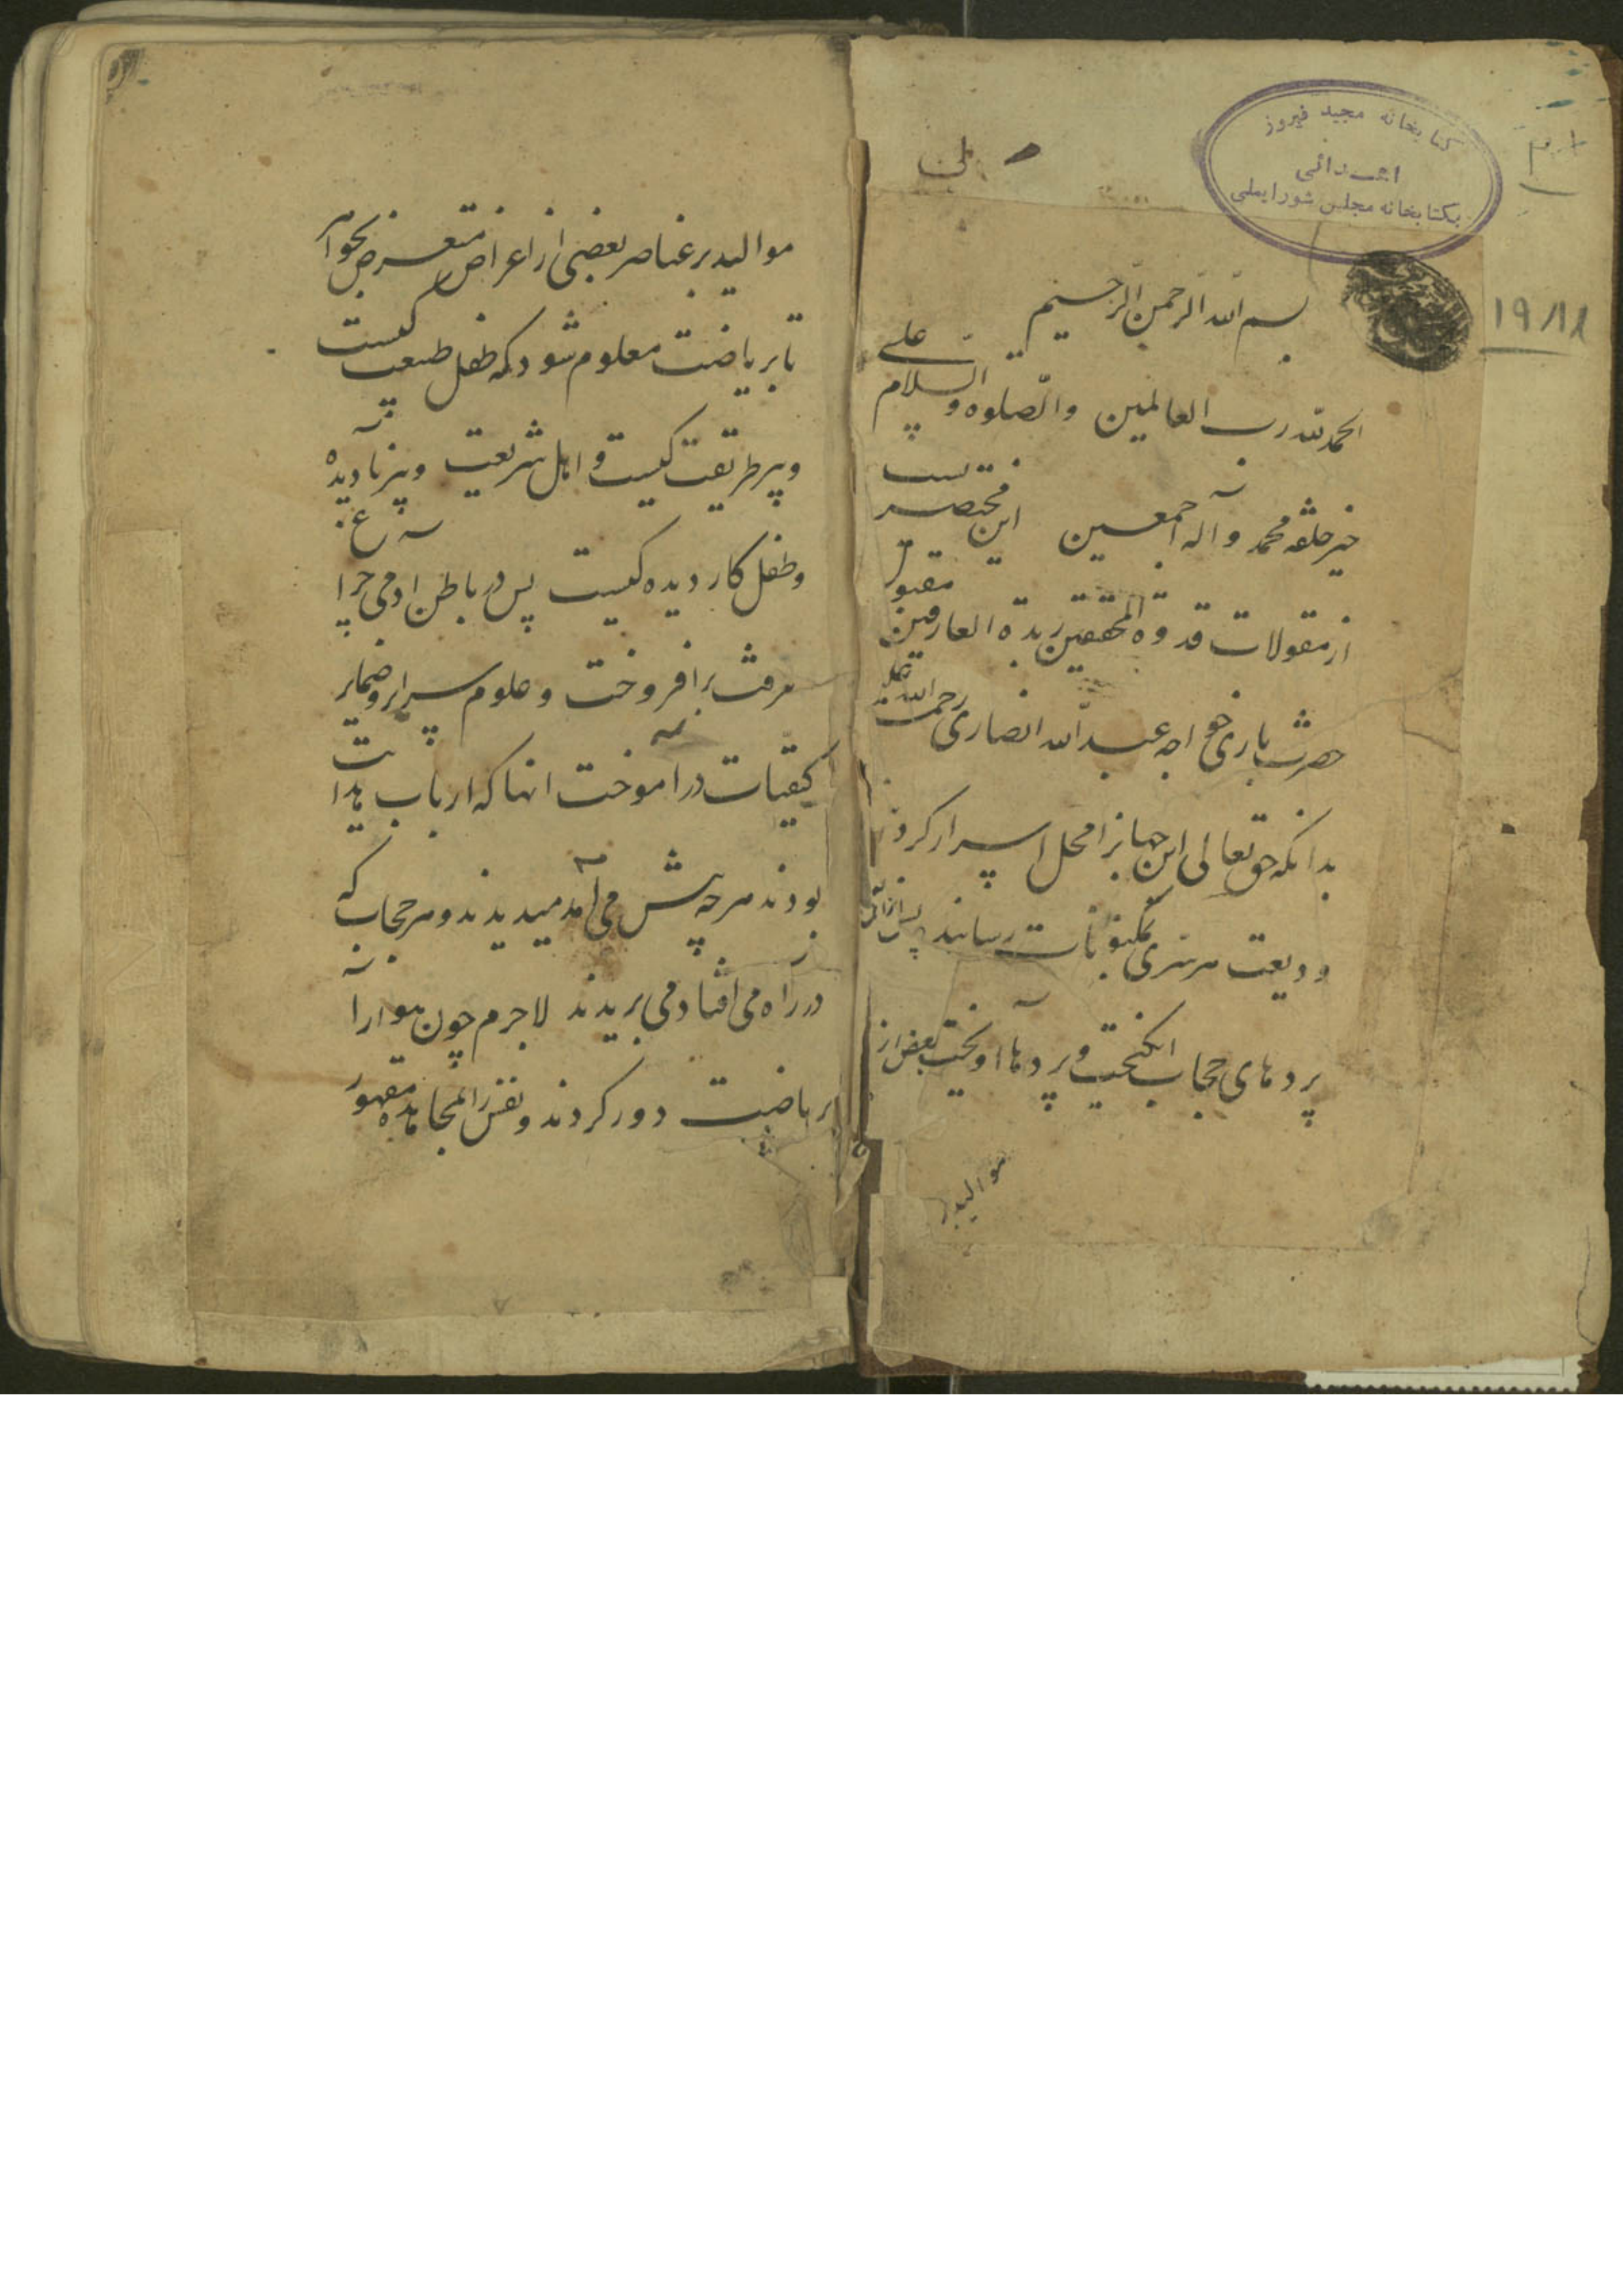 کتابخانه مجید فیروز
اهدائی
بکتابخانه مجلس شورایملی
۱۹۱۸۱
بسم الله الرحمن الرحیم
الحمد لله رب العالمین والصلوة والسلام علی
خیر خلقه محمد و اله اجمعین این مختصریست
از مقولات قدوة المحققین زبدة العارفین مقبول
حضرت باری خواجه عبدالله انصاری رحمة الله علیه
بدانکه حق تعالی این جهانرا محل اسرار کرد و
ودیعت هر سری بمکنونات رسانند پس از آن
پردهای حجاب انگیخت و پردها آویخت بعض از
موالید بر
موالید بر عناصر بعضی از اعراض متعرض بجواهر
تا بریاضت معلوم شود که طفل طبیعت کیست
و پیر طریقت کیست و اهل شریعت و پیر نادیده
و طفل کار دیده کیست پس در باطن ادمی چراغ
معرفت برافروخت و علوم سرایر و ضمایر
کیفیات درآموخت انها که ارباب هدایت
بودند هر چه پیش می آمد میدیدند و هر حجاب که
در راه می افتاد می بریدند لاجرم چون هوا را
بریاضت دور کردند و نفس را بمجاهده مقهور